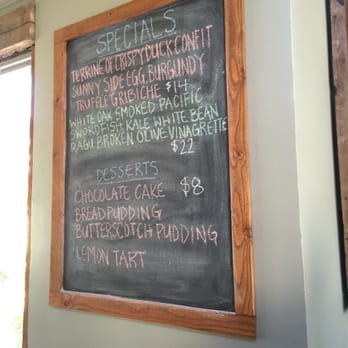 SPECIALS
TERRINE OF CRISPY DUCK CONFIT
SUNNY SIDE EGG, BURGUNDY
TRUFFLE GRIBICHE $14
WHITE OAK SMOKED PACIFIC
SWORDFISH KALE, WHITE BEAN
RAGU, BROKEN OLIVE VINAGRETTE
$22
DESSERTS
CHOCOLATE CAKE $8
BREAD PUDDING
BUTTERSCOTCH PUDDING
LEMON TART